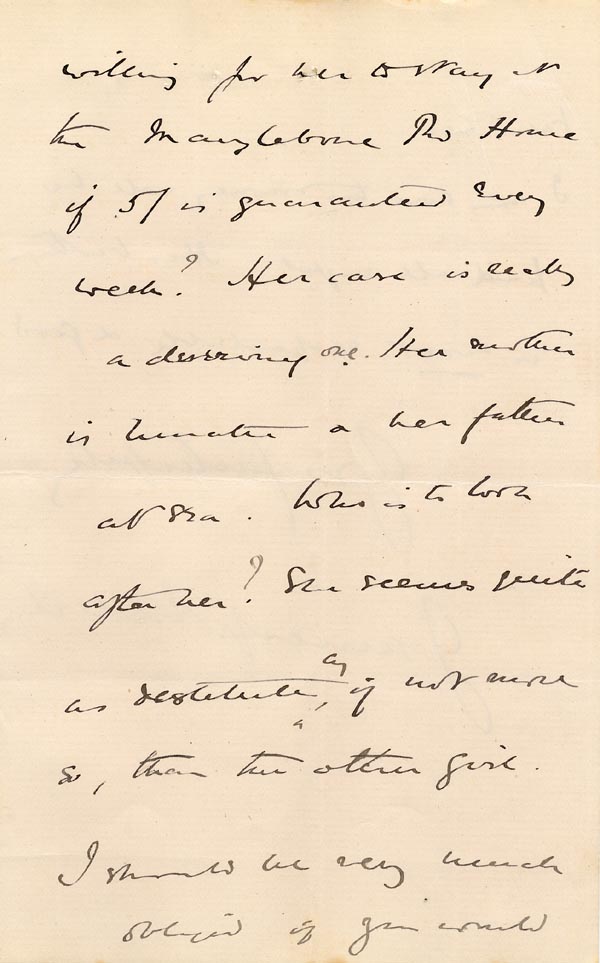 willing for her to stay at
the Marylebone Home
if 5/ is guaranteed every
week? Her case is really
a deserving one. Her mother
is lunatic & her father
at sea. Who is to look
after her? She seems quite
as destitute, as if not more
so, than the other girl.
I should be very much
obliged if you would